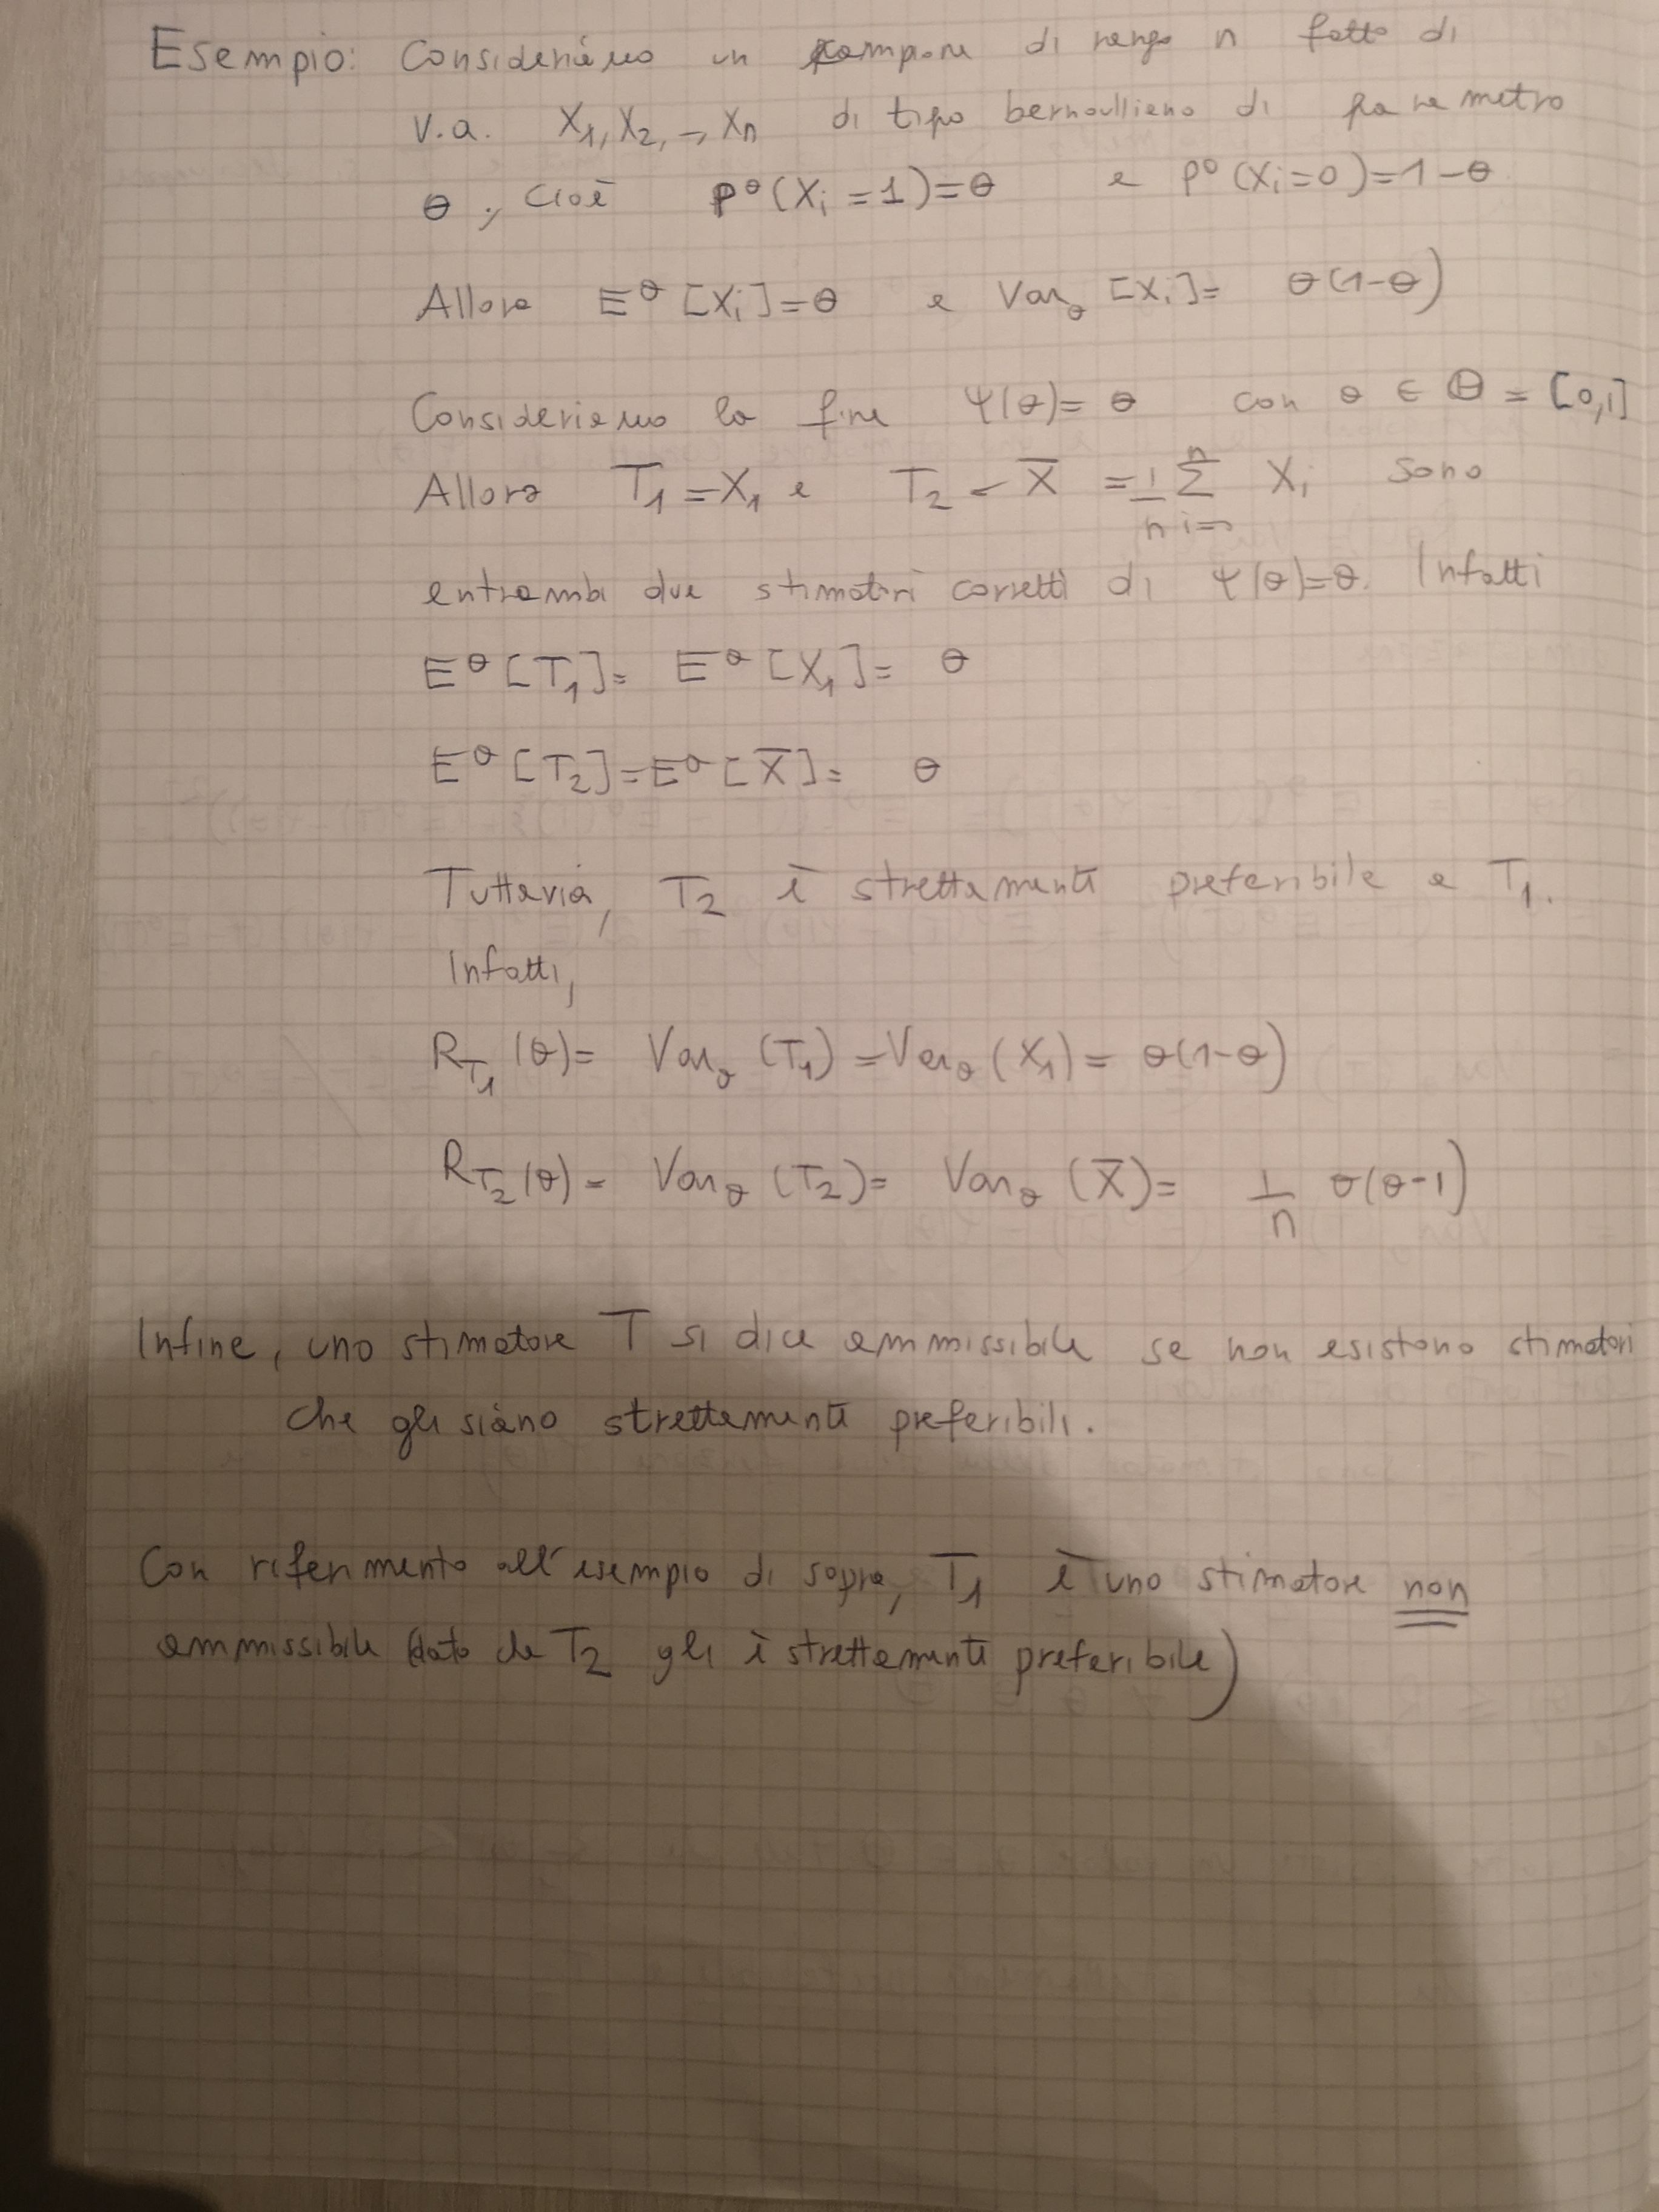 Esempio: Consideriamo un campione di rango n fatto di
v.a. X₁, X₂, –, Xn di tipo bernoulliano di parametro
θ, cioè P^θ(Xᵢ=1)=θ e P^θ(Xᵢ=0)=1-θ
Allora E^θ[Xᵢ]=θ e Var_θ[Xᵢ]= θ(1-θ)
Consideriamo la fine Ψ(θ)=θ con θ ∈ Θ = [0,1]
Allora T₁=X₁ e T₂ = X̄ = 1/n Σ_{i=1}^{n} Xᵢ sono
entrambi due stimatori corretti di Ψ(θ)=θ. Infatti
E^θ[T₁]= E^θ[X₁]= θ
E^θ[T₂]=E^θ[X̄]= θ
Tuttavia, T₂ è strettamente preferibile a T₁.
Infatti,
R_{T₁}(θ)= Var_θ(T₁)=Var_θ(X₁)= θ(1-θ)
R_{T₂}(θ)= Var_θ(T₂)= Var_θ(X̄)= 1/n θ(θ-1)
Infine, uno stimatore T si dice ammissibile se non esistono stimatori
che gli siano strettamente preferibili.
Con riferimento all'esempio di sopra, T₁ è uno stimatore non
ammissibile (dato che T₂ gli è strettamente preferibile)